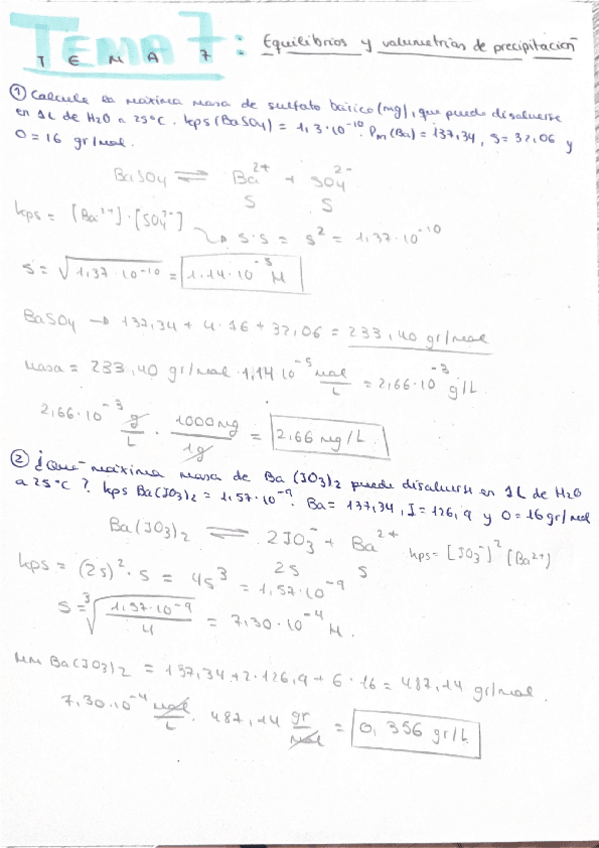 TEMA 7: Equilibrios y valumetrias de precipitación
T E M A 7
① Calcule la máxima masa de sulfato bárico (mg), que puede disolverse
en 1L de H2O a 25°C. kps (BaSO4) = 1,3·10⁻¹⁰. Pm (Ba) = 137,34, S = 32,06 y
O = 16 gr/mol.
BaSO4 ⇌ Ba²⁺ + SO4²⁻
S S
kps = [Ba²⁺]·[SO4²⁻]
↳ s·s = s² = 1,37·10⁻¹⁰
s = √1,37·10⁻¹⁰ = 1.14·10⁻⁵ M
BaSO4 → 137,34 + 4·16 + 32,06 = 233,40 gr/mol
masa = 233,40 gr/mol · 1,14 10⁻⁵ mol/L = 2,66·10⁻³ g/L.
2,66·10⁻³ g/L · 1000mg/1g = 2,66 mg/L.
② ¿Que máxima masa de Ba (IO3)2 puede disolverse en 1L de H2O
a 25°C? kps Ba(IO3)2 = 1,57·10⁻⁹. Ba = 137,34, I = 126,9 y O = 16 gr/mol
Ba(IO3)2 ⇌ 2IO3⁻ + Ba²⁺ kps = [IO3⁻]² [Ba²⁺]
2S S
kps = (2s)²·s = 4s³ = 1,57·10⁻⁹
s = ³√1,57·10⁻⁹/4 = 7,30·10⁻⁴ M.
MM Ba(IO3)2 = 137,34 + 2·126,9 + 6·16 = 487,14 gr/mol.
7,30·10⁻⁴ mol/L · 487,14 gr/mol = 0,356 gr/L